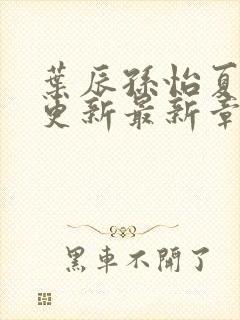 葉辰孫怡夏
更新最新章
黑車不開了